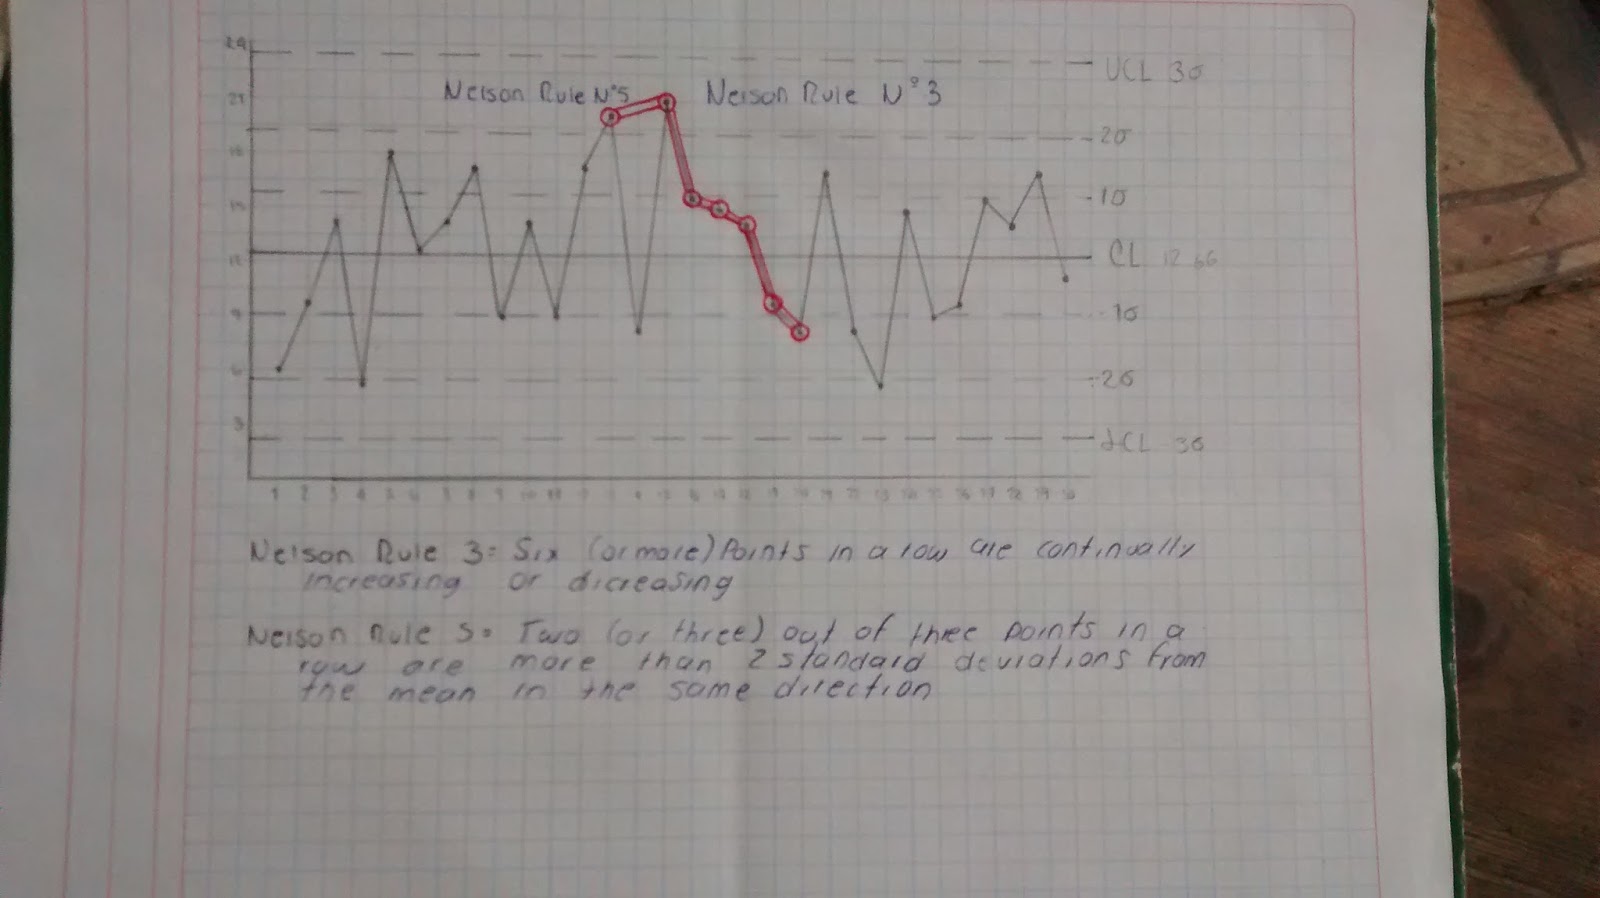 24
Nelson Rule N°5
Nelson Rule N°3
UCL 3σ
21
2σ
18
1σ
15
CL 12.66
12
-1σ
9
-2σ
6
LCL 3σ
3
1 2 3 4 5 6 7 8 9 10 11
Nelson Rule 3= Six (or more) Points in a row are continually
increasing or dicreasing
Nelson Rule 5= Two (or three) out of three points in a
row are more than 2 standard deviations from
the mean in the same direction